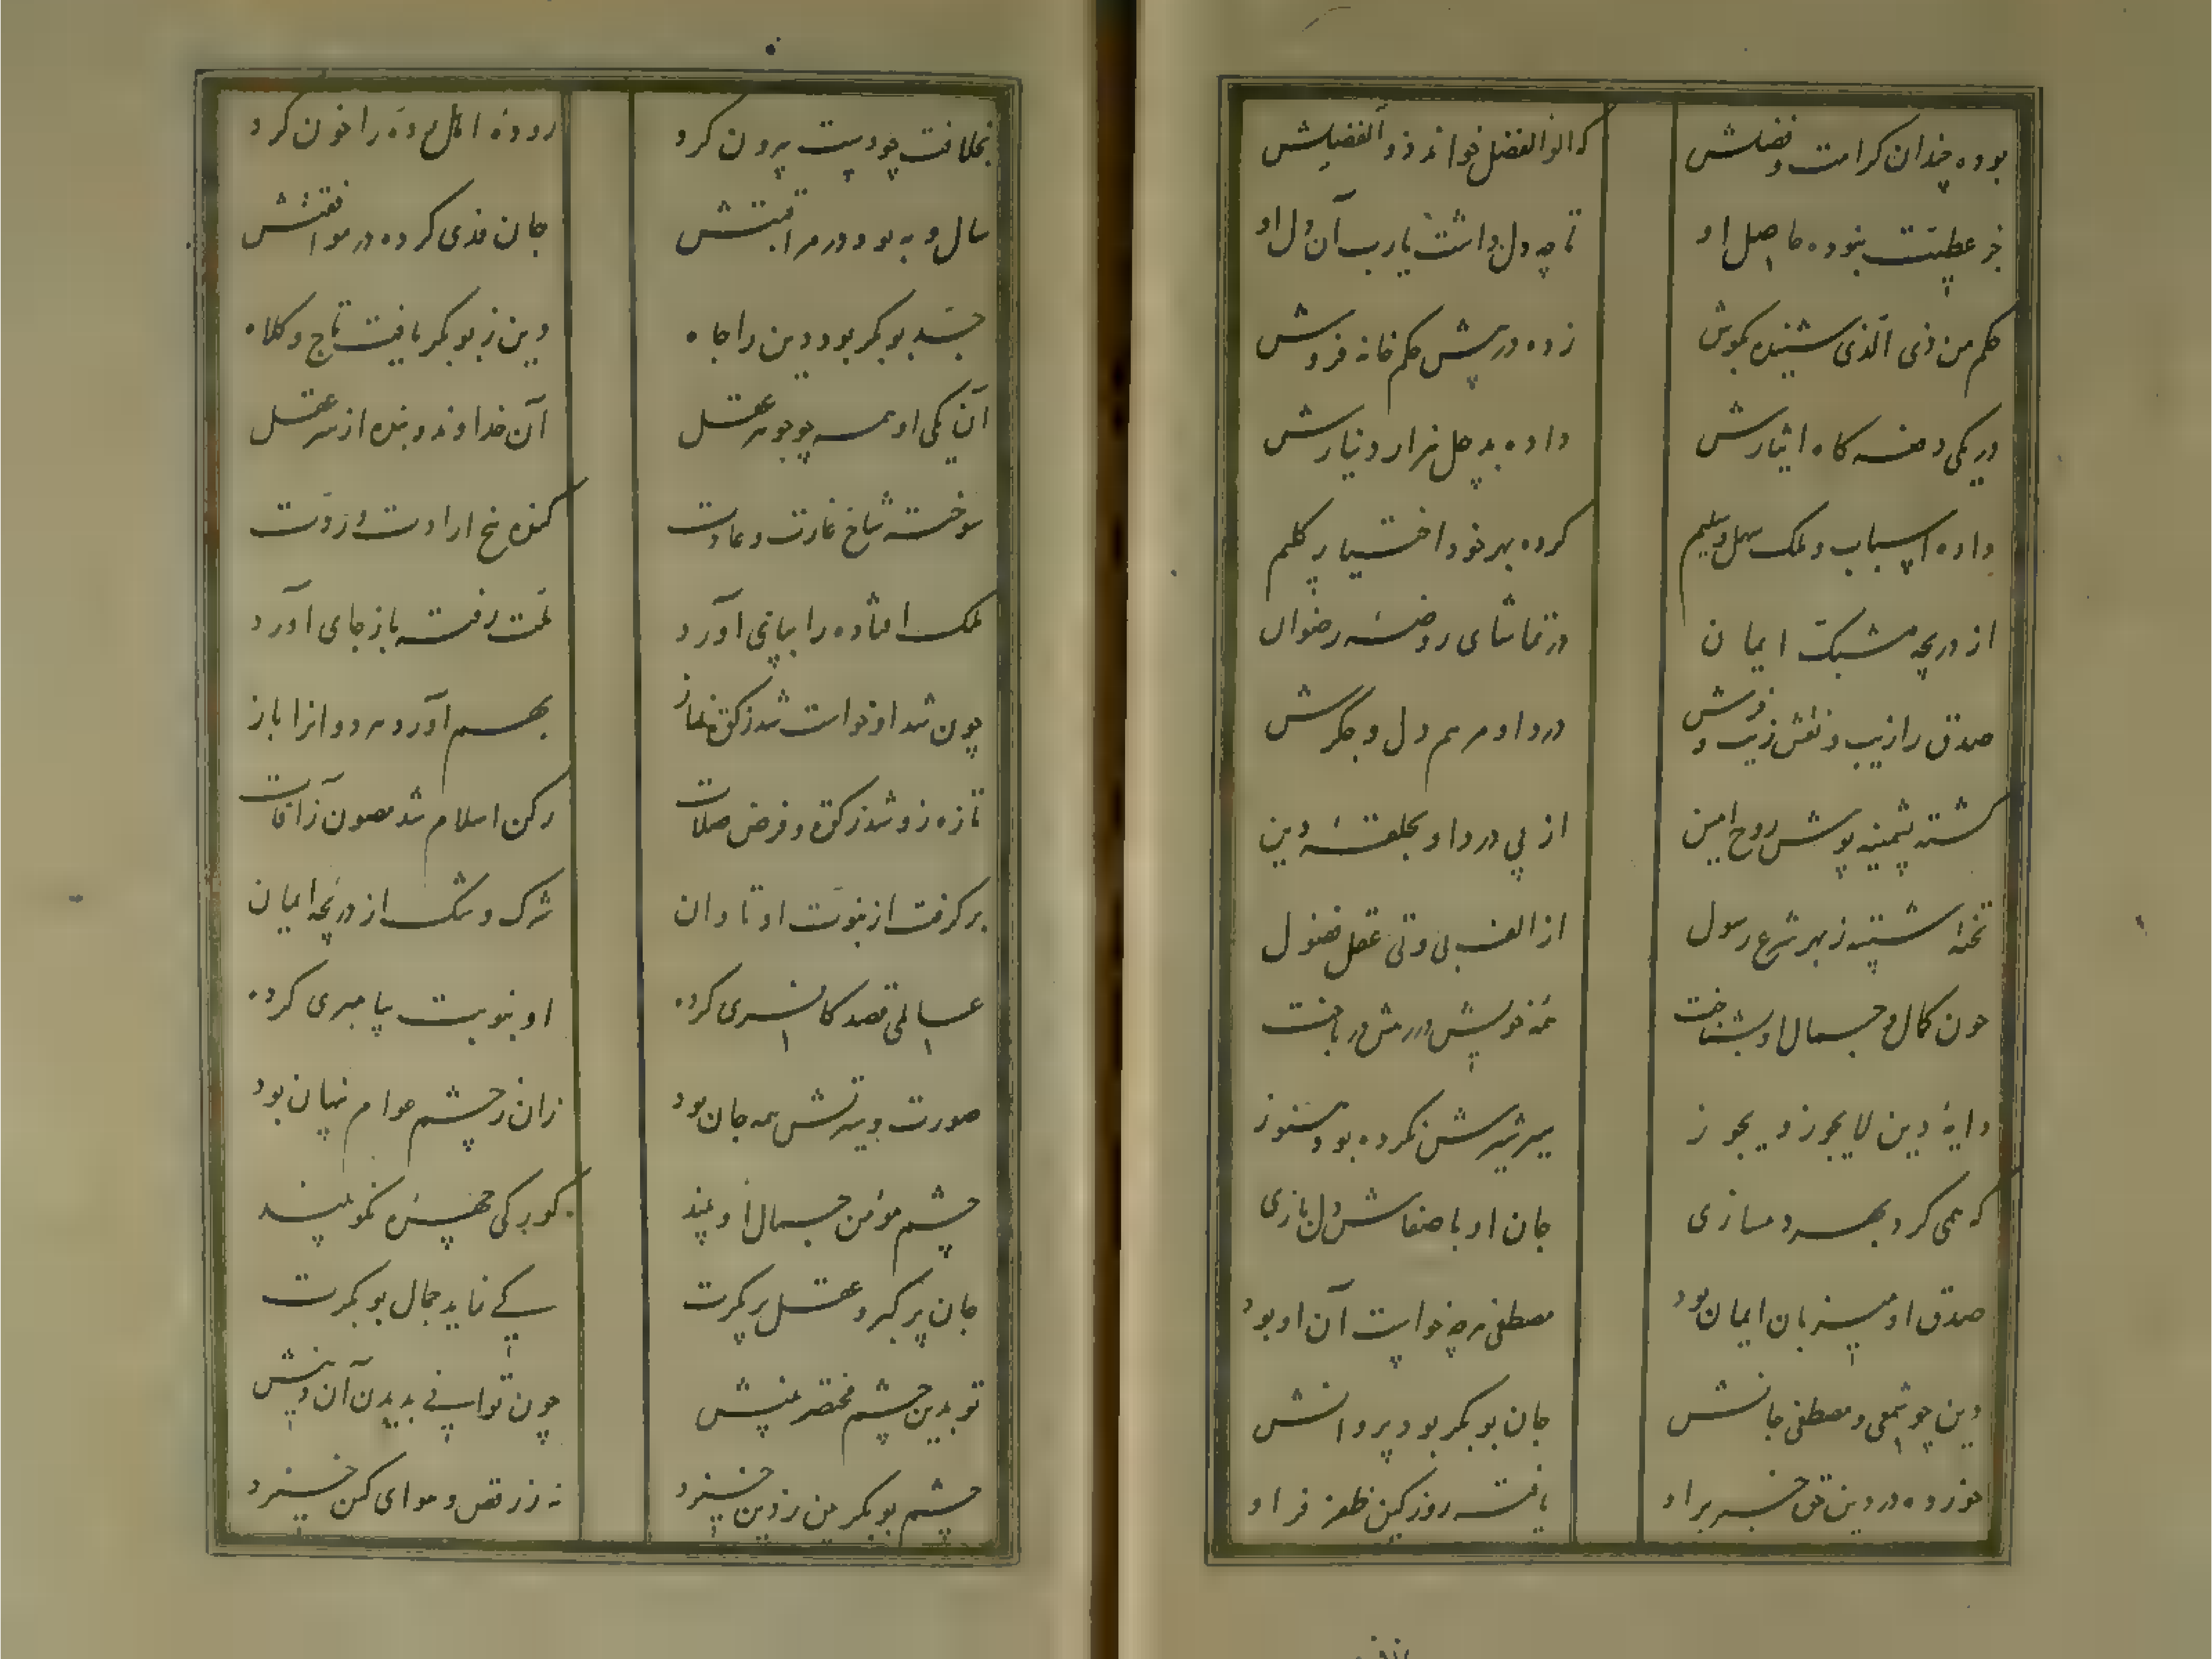 بوده چندان کرامت و فضلش
که اولوا الفضل خواند ذو الفضلش
جز عطیت نبوده حاصل او
تا چه دل داشت یارب آن دل او
حکم من ذی الذی شنیده بگوش
زده در پیش حکم خانه فروش
در یکی دفعه گاه ایثارش
داده بد چل هزار دینارش
داده اسباب و ملک سهل و سلیم
کرده بهر خود اختیار گلیم
از دریچه مشبک ایمان
در تماشای روضه رضوان
صدق را زیب و نقش زیب و فرش
درد او مرهم دل و جگرش
گشته پشمینه پوش روح امین
از پی درد او بحلقه دین
تخته شسته ز بهر شرع رسول
از الف بی و تی عقل فضول
چون کمال و جمال او بشناخت
همه خویش در رهش در باخت
دایه دین لا یجوز و یجوز
سیر شیرش نکرده بود هنوز
که همی کرد بهر دمسازی
جان او با صفاش دل بازی
صدق او میزبان ایمان بود
مصطفی هرچه خواست آن او بود
دین چو شمعی و مصطفی جانش
جان بوبکر بود پروانش
خورده در دین حق خبر بر او
یافت روز کین ظفر فر او
بخلافت چو دست بیرون کرد
روده اهل رده را خون کرد
سال و مه بود در مراقبتش
جان فدی کرده در موافقتش
جسد بوبکر بود دین را جاه
دین ز بوبکر یافت تاج و کلاه
آن یکی او همه چو جوهر عقل
آن خداوند و بنده از سر عقل
سوخته شاخ غارت و عادت
کنده بیخ ارادت و ردت
ملک افتاده را بپای آورد
ملت رفته باز جای آورد
چون شد او خواست شد زکوة نماز
بهم آورد هر دوانرا باز
تازه زو شد زکوة و فرض صلات
رکن اسلام شد مصون ز آفات
بر گرفت از نبوت او تاوان
شرک و شک از دریچه ایمان
عالمی قصد کافری کرده
او بنوبت پیامبری کرده
صورت و سیرتش همه جان بود
زان ز چشم عوام پنهان بود
چشم مؤمن جمال او بیند
کور کی چهره نکو بیند
جان پر کبر و عقل پر مکرت
کی نماید جمال بوبکرت
تو بدین چشم مختصر بینش
چون توانی بدیدن آن دینش
چشم بوبکر بین ز دین خیزد
نه ز رفض و هوای کین خیزد